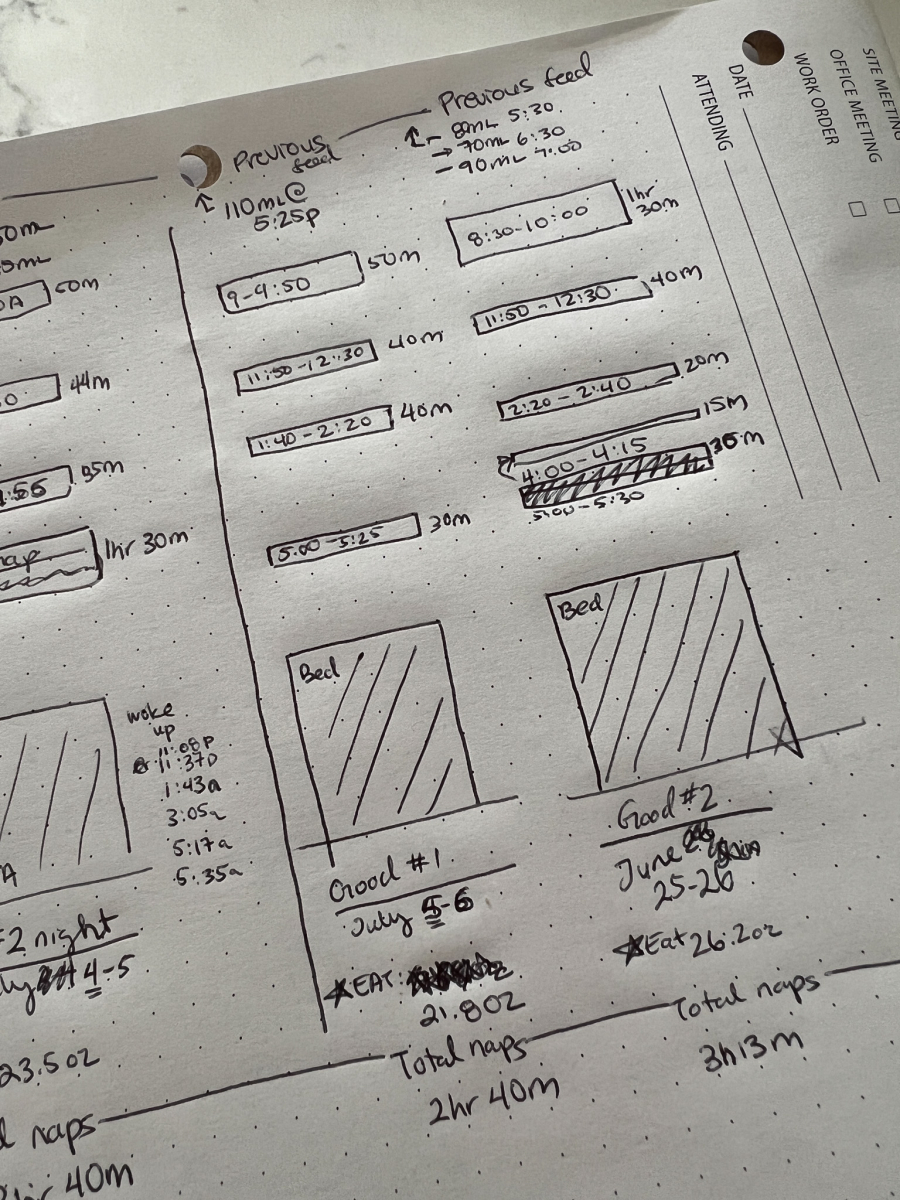 SITE MEETING
OFFICE MEETING
WORK ORDER
DATE
ATTENDING
50m
44m
35m
1hr 30m
woke
up
11:08p
11:37p
1:43a
3:05a
5:17a
5:35a
#2 night
4-5
23.5oz
naps
40m
Previous
feed
110mL@
5:25p
9-9:50
50m
11:50-12:30
40m
1:40-2:20
40m
5:00-5:25
30m
Bed
Good #1
July 5-6
EAT:
21.8oz
Total naps
2hr 40m
Previous feed
- 8mL 5:30
→ 70mL 6:30
- 90mL 7:00
8:30-10:00
1hr
30m
11:50-12:30
40m
2:20-2:40
20m
15m
4:00-4:15
5:00-5:30
Bed
Good #2
June
25-26
Eat 26.2oz
Total naps
3h13m